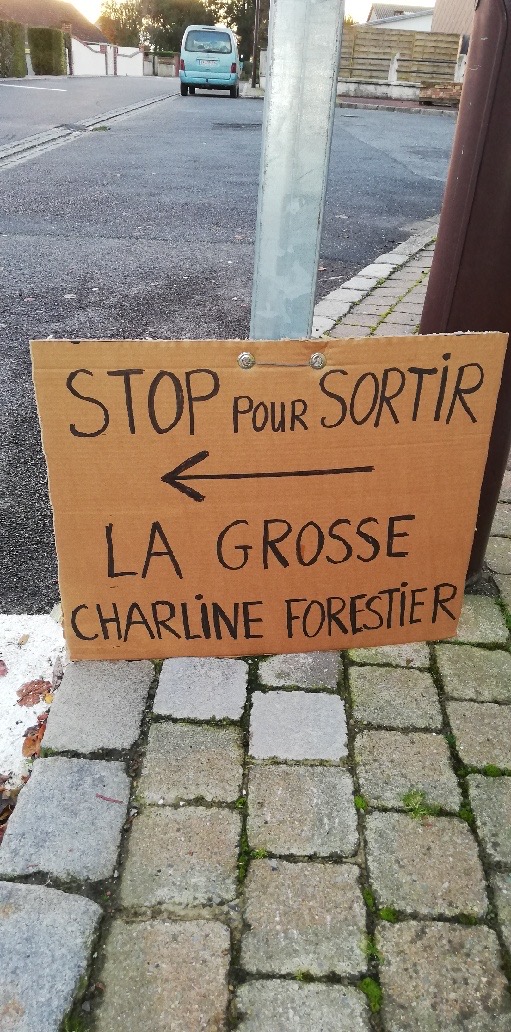 STOP POUR SORTIR
LA GROSSE
CHARLINE FORESTIER